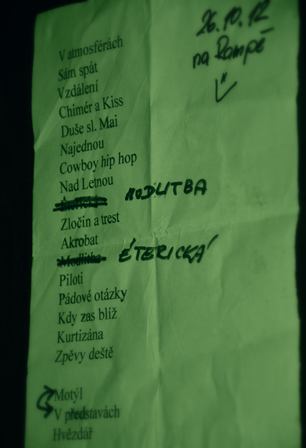 26.10.12
na Rampě
V atmosférách
Sám spát
Vzdálení
Chimér a Kiss
Duše sl. Mai
Najednou
Cowboy hip hop
Nad Letnou
MODLITBA
Zločin a trest
Akrobat
Modlitba ÉTERICKÁ
Piloti
Pádové otázky
Kdy zas blíž
Kurtizána
Zpěvy deště
Motýl
V představách
Hvězdář